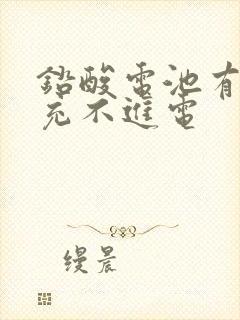 鉛酸電池有
充不進電
缦晨